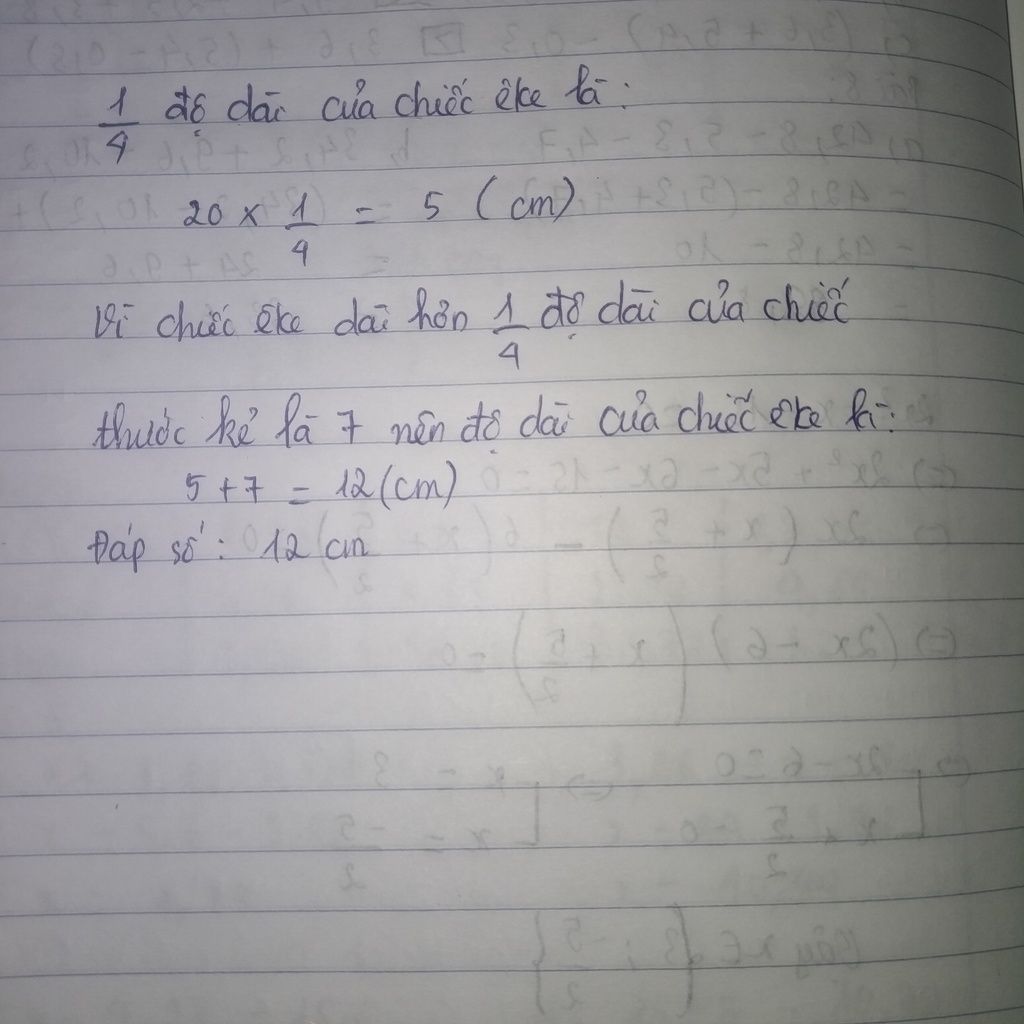 1/4 độ dài của chiếc êke là:
20 × 1/4 = 5 (cm)
Vì chiếc êke dài hơn 1/4 độ dài của chiếc
thước kẻ là 7 nên độ dài của chiếc êke là:
5 + 7 = 12 (cm)
Đáp số: 12 cm